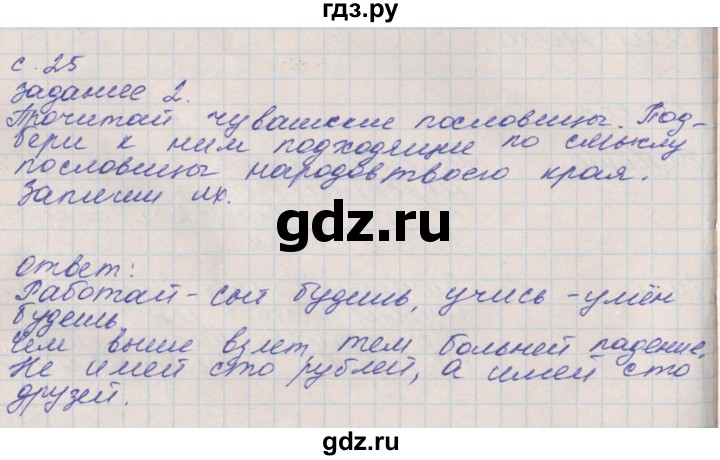 гдз.ру
с. 25
Задание 2.
Прочитай чувашские пословицы. Под-
бери к ним подходящие по смыслу
пословицы народов твоего края.
Запиши их.
gdz.ru
ответ:
Работай - сыт будешь, учись - умён
будешь.
Чем выше взлет, тем больней падение.
Не имей сто рублей, а имей сто
друзей.
gdz.ru